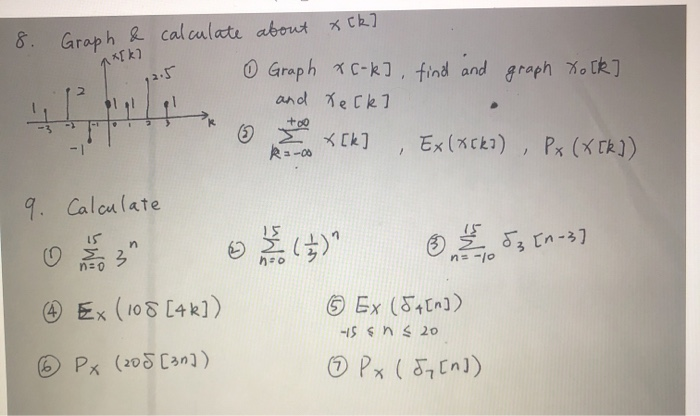 8. Graph & calculate about x[k]
x[k]
1 2 -1 1 1 2.5 1
-3 -2 -1 0 1 2 3 k
① Graph x[-k], find and graph x₀[k]
and xe[k]
② +∞ Σ k=-∞ x[k] , Ex(x[k]) , Px(x[k])
9. Calculate
① 15 Σ n=0 3ⁿ
② 15 Σ n=0 (1/3)ⁿ
③ 15 Σ n=-10 δ₃[n-3]
④ Ex(10δ[4k])
⑤ Ex(δ₄[n])
-15 ≤ n ≤ 20
⑥ Px(20δ[3n])
⑦ Px(δ₇[n])